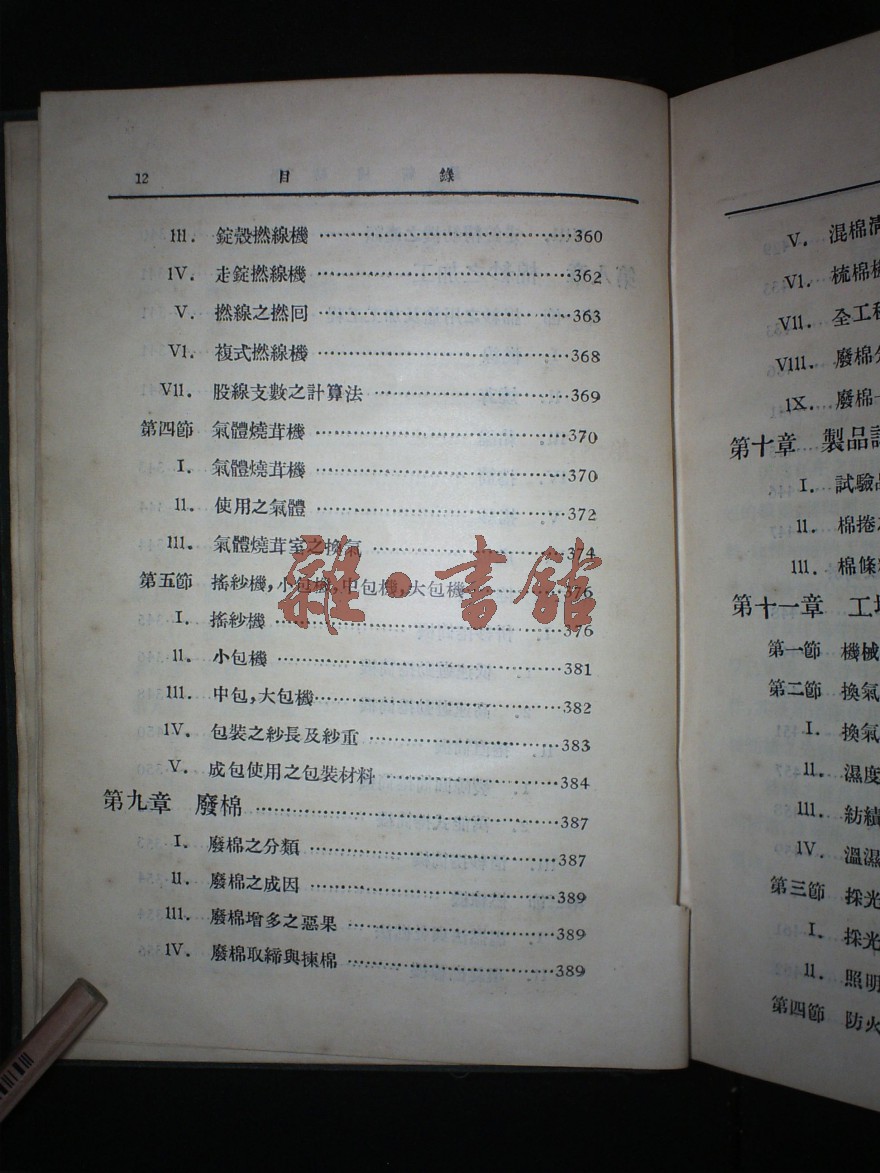 12 目 錄
III. 錠殼撚線機 360
IV. 走錠撚線機 362
V. 撚線之撚回 363
VI. 複式撚線機 368
VII. 股線支數之計算法 369
第四節 氣體燒茸機 370
I. 氣體燒茸機 370
II. 使用之氣體 372
III. 氣體燒茸室之換氣 374
第五節 搖紗機,小包機,中包機,大包機 376
I. 搖紗機 376
II. 小包機 381
III. 中包,大包機 382
IV. 包裝之紗長及紗重 383
V. 成包使用之包裝材料 384
第九章 廢棉 387
I. 廢棉之分類 387
II. 廢棉之成因 389
III. 廢棉增多之惡果 389
IV. 廢棉取締與揀棉 389
雜·書館
V. 混棉
VI. 梳棉
VII. 全工
VIII. 廢棉
IX. 廢棉
第十章 製品
I. 試驗
II. 棉捲
III. 棉條
第十一章 工
第一節 機械
第二節 換氣
I. 換氣
II. 濕度
III. 紡績
IV. 溫濕
第三節 採光
I. 採光
II. 照明
第四節 防火